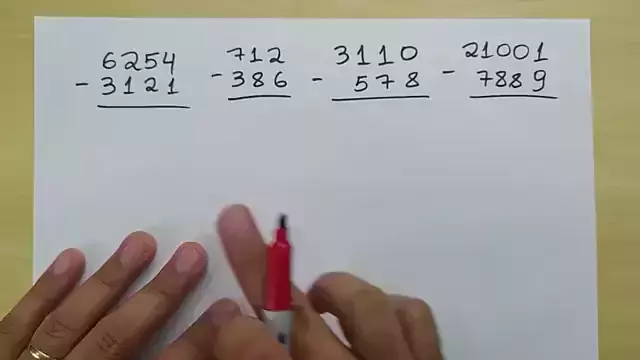 6254 712 3110 21001
- 3121 - 386 - 578 - 7889